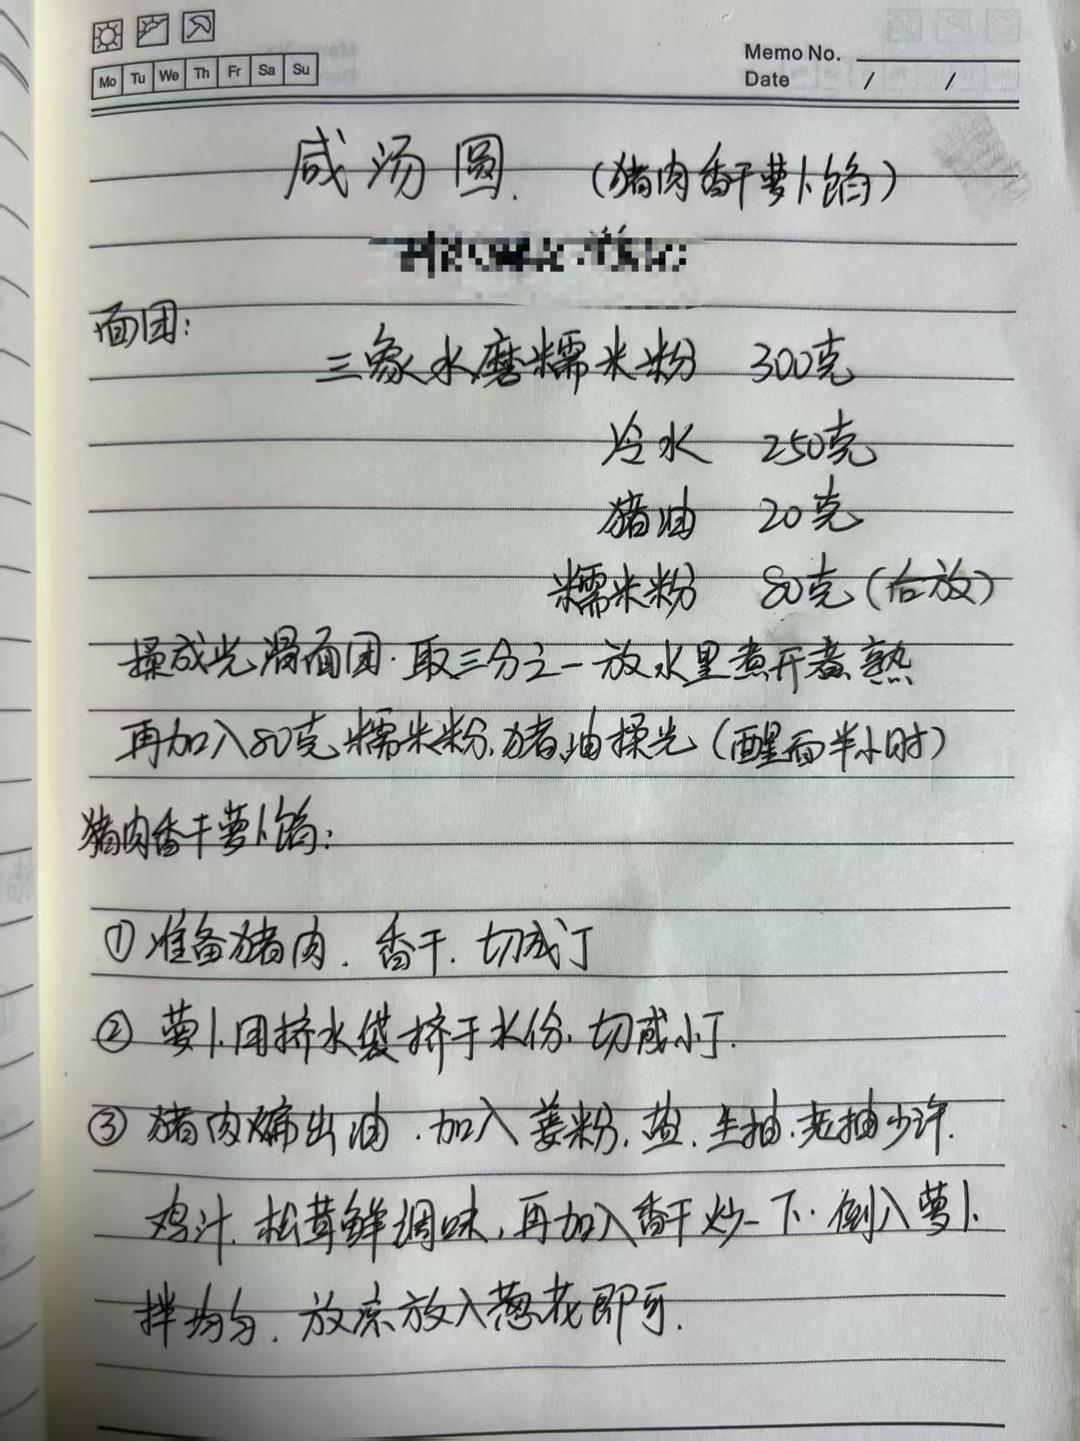 Mo Tu We Th Fr Sa Su
Memo No.
Date / /
咸汤圆. (猪肉香干萝卜馅)
面团:
三象水磨糯米粉 300克
冷水 250克
猪油 20克
糯米粉 80克(后放)
揉成光滑面团.取三分之一放水里煮开煮熟
再加入80克糯米粉.猪油揉光(醒面半小时)
猪肉香干萝卜馅:
①准备猪肉.香干.切成丁
②萝卜用挤水袋挤干水份.切成小丁.
③猪肉煸出油.加入姜粉.盐.生抽.老抽少许.
鸡汁.松茸鲜调味,再加入香干炒一下.倒入萝卜
拌均匀.放凉放入葱花即可.